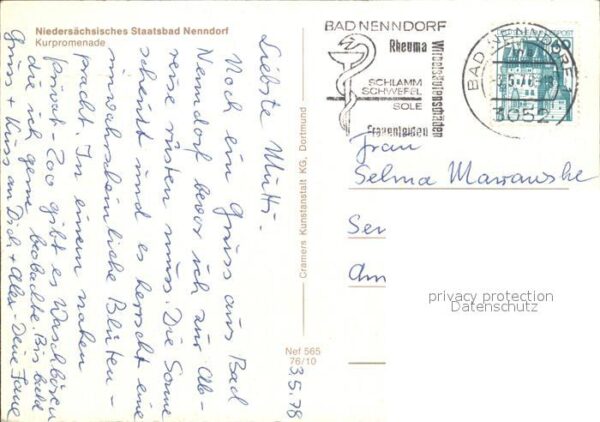 Niedersächsisches Staatsbad Nenndorf
Kurpromenade
Liebste Mutti.
Noch ein Gruss aus Bad
Nenndorf bevor ich zur Ab-
reise rüsten muss. Die Sonne
scheint und es herrscht eine
unwahrscheinliche Blüten-
pracht. In einem nahen
privat-Zoo gibt es Waschbären
die ich gerne beobachte. Bis bald
Gruss + Kuss an Dich + alle - Deine
3.5.78
Cramers Kunstanstalt KG, Dortmund
Nef 565
76/10
BAD NENNDORF
Rheuma
Wirbelsäulenschäden
SCHLAMM
SCHWEFEL
SOLE
Frauenleiden
BAD NENNDORF
3052
Frau
Selma
privacy protection
Datenschutz